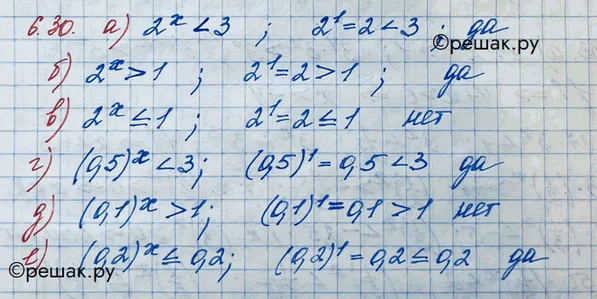 6.30. а) 2^x < 3 ; 2^1 = 2 < 3 ; да
©решак.ру
б) 2^x > 1 ; 2^1 = 2 > 1 ; да
в) 2^x ≤ 1 ; 2^1 = 2 ≤ 1 нет
г) (0,5)^x < 3; (0,5)^1 = 0,5 < 3 да
д) (0,1)^x > 1; (0,1)^1 = 0,1 > 1 нет
е) (0,2)^x ≤ 0,2; (0,2)^1 = 0,2 ≤ 0,2 да
©решак.ру